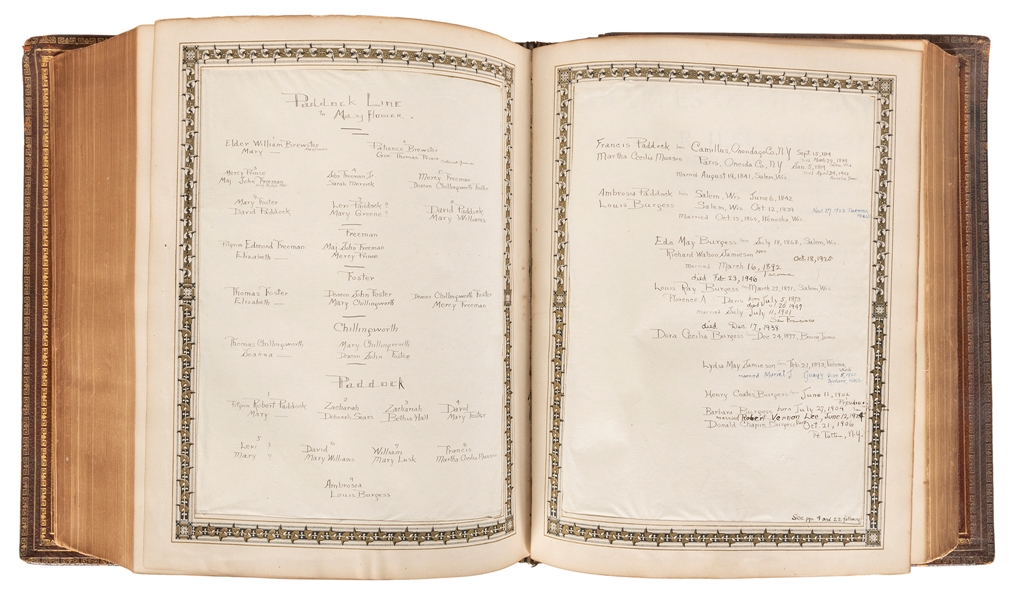 Paddock Line
to Mayflower.
Elder William Brewster
Mary —
Patience Brewster
Gov. Thomas Prince
Mercy Prince
Maj. John Freeman
4
John Freeman Jr
Sarah Merrick
5
Mercy Freeman
Deacon Chillingworth Foster
Mary Foster
David Paddock
Levi Paddock?
Mary Greene?
8
David Paddock
Mary Williams
Freeman
Edmond Freeman
Elizabeth —
Maj. John Freeman
Mercy Prince
Foster
Thomas Foster
Elizabeth —
Deacon John Foster
Mary Chillingworth
Deacon Chillingworth Foster
Mercy Freeman
Chillingworth
Thomas Chillingworth
Joanna —
Mary Chillingworth
Deacon John Foster
Paddock
1
Robert Paddock
Mary —
2
Zachariah
Deborah Sears
3
Zachariah
Bethia Hall
4
David
Mary Foster
5
Levi ?
Mary ?
6
David
Mary Williams
7
William
Mary Lusk
8
Francis
Martha Cecilia
9
Ambrosia
Louis Burgess
Francis Paddock born Camillus, Onondaga Co, N.Y. Sept. 15, 1814
Martha Cecilia Paris, Oneida Co, N.Y.
Married August 19, 1841, Salem, Wis
Ambrosia Paddock born Salem, Wis June 6, 1842
Louis Burgess Salem, Wis Oct. 12, 1839
Married Oct 15, 1865, Wis.
Eda May Burgess born July 18, 1868, Salem, Wis.
Richard Watson Jamieson Oct. 18, 1920
married March 16, 1892
died Feb 23, 1946 Tacoma
Louis Ray Burgess March 22, 1871, Salem, Wis
Florence A Davis born July 5, 1873
died 1949
married July 11, 1901
San Francisco
died Dec. 17, 1938
Dora Cecilia Burgess Dec 24, 1877,
Lydia May Jamieson Feb. 23, 1893, Tacoma
married
Henry Coates Burgess June 11, 1902
Barbara Burgess born July 27, 1904
married Robert Vernon Lee, June 12,
Donald Chapin Burgess born Oct. 21, 1906
Ft. Totten, N.Y.
See pp. 4 and 22 following